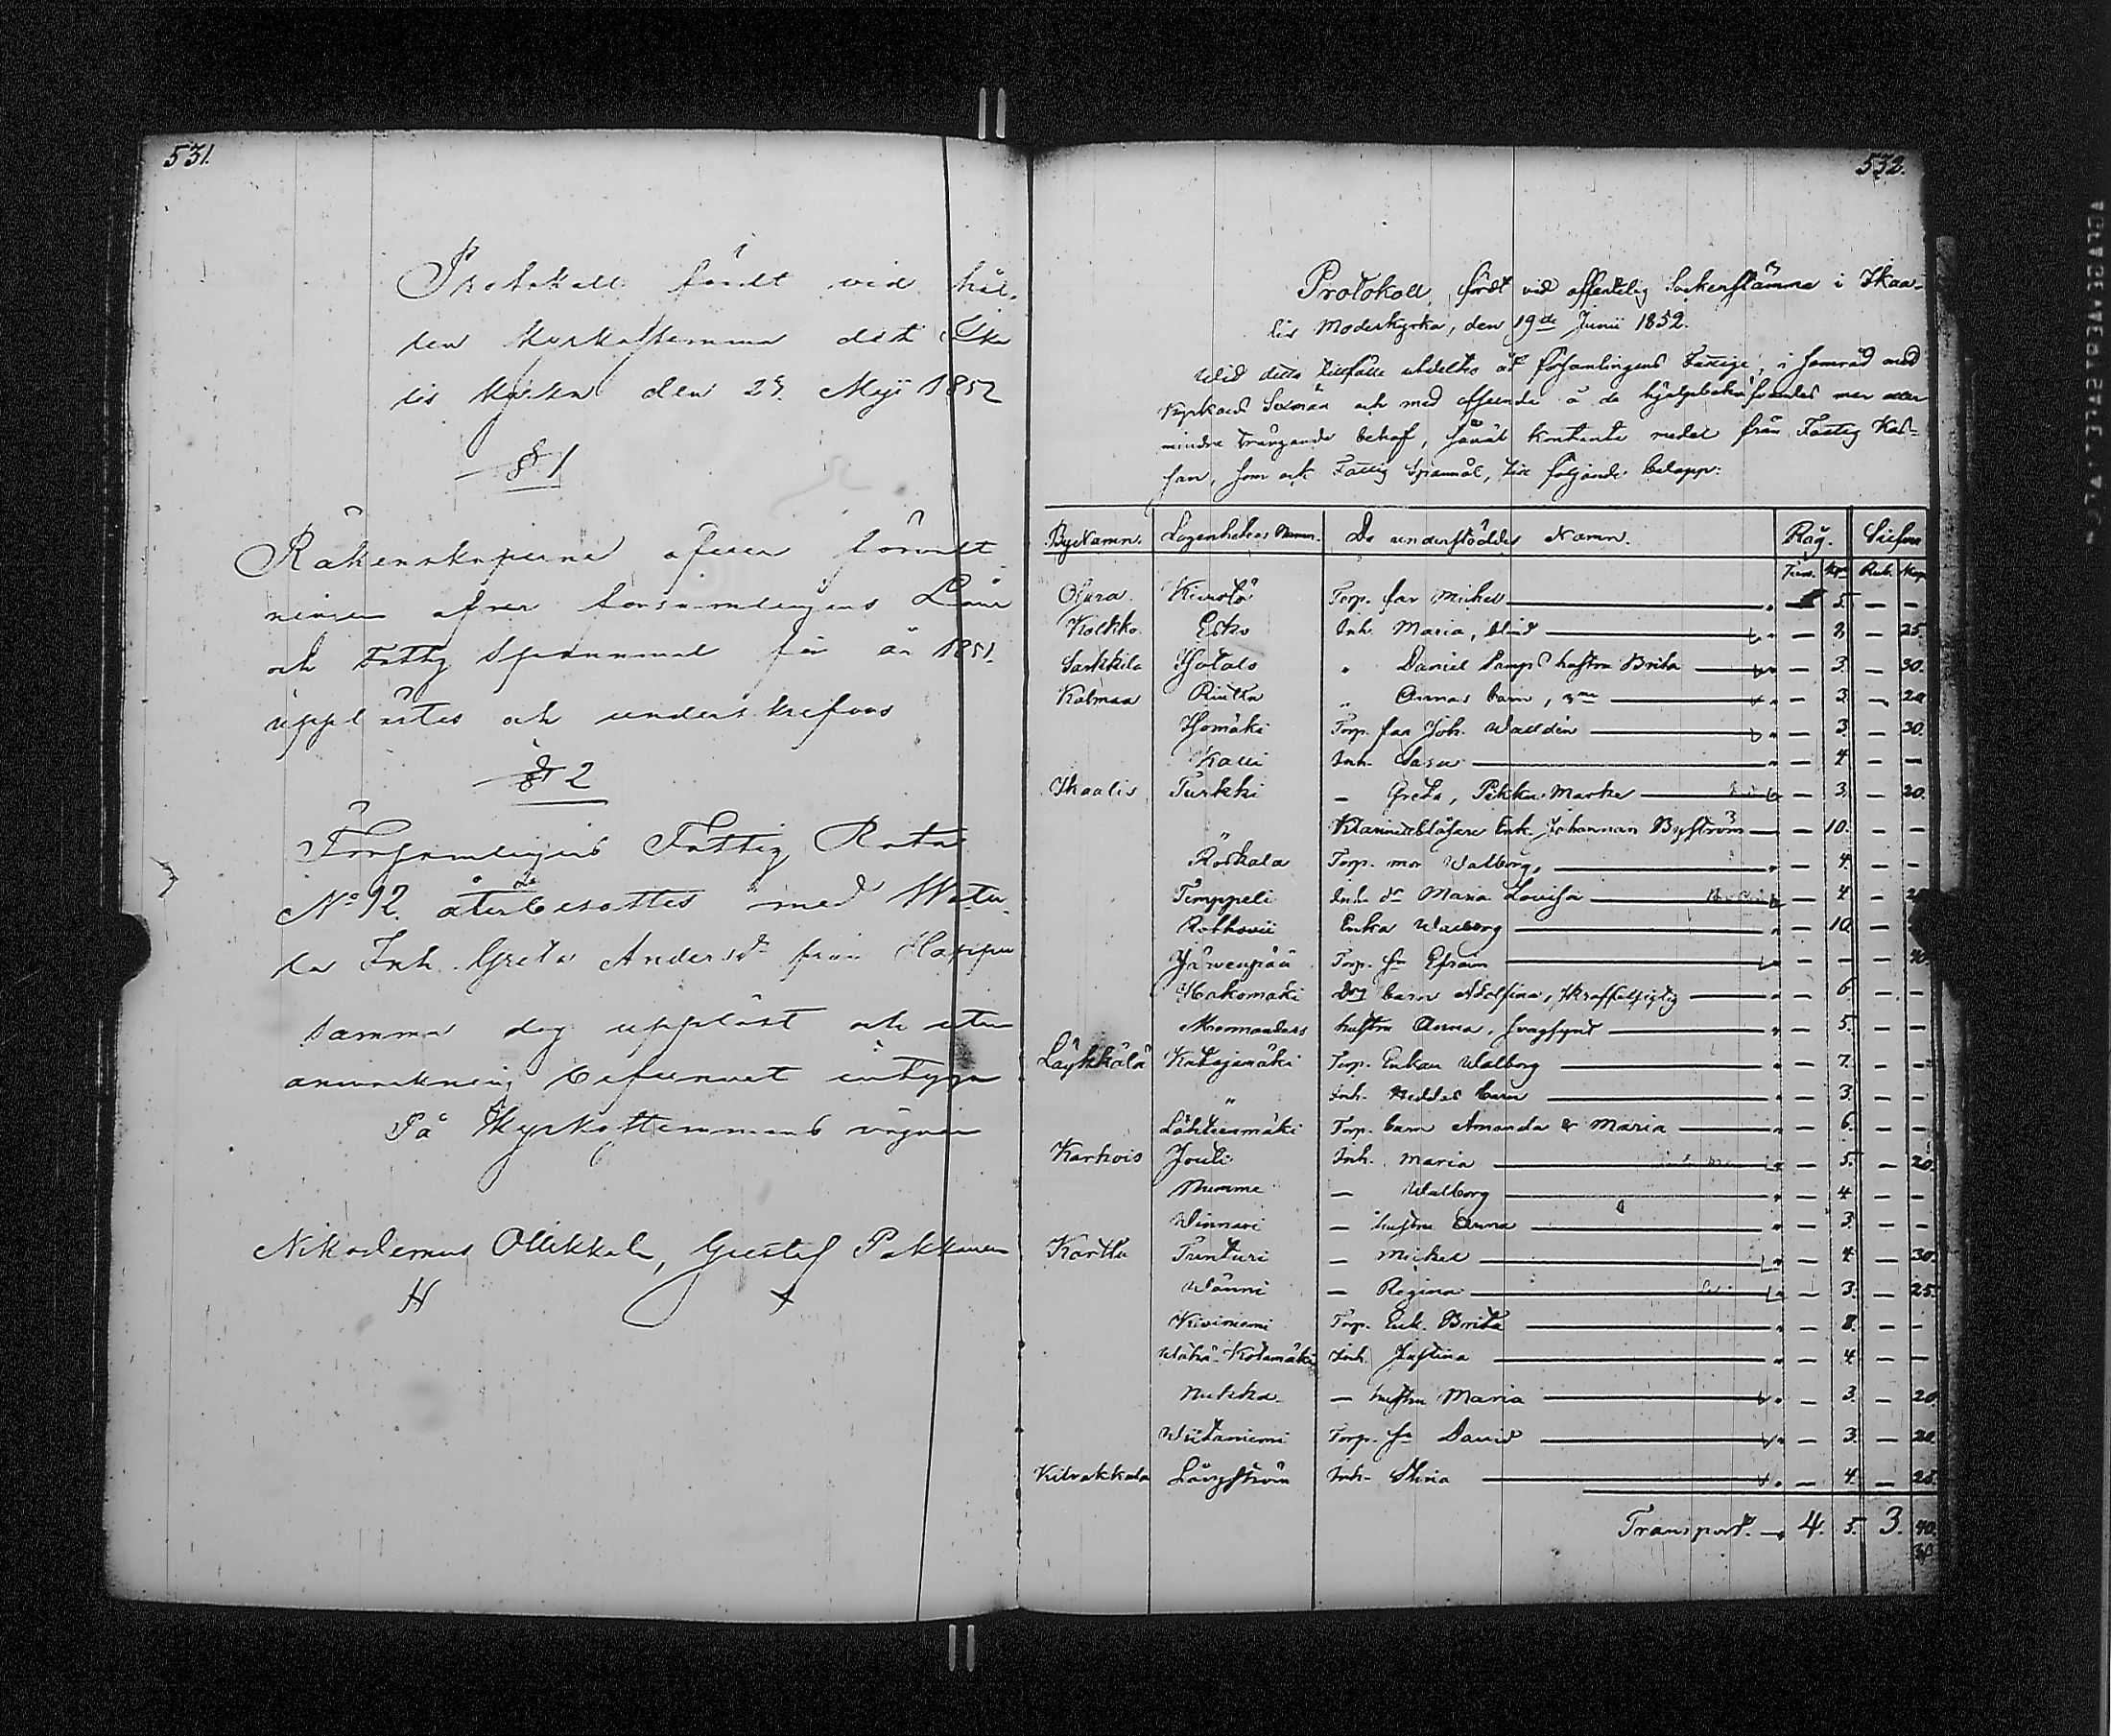 531.
Protokoll fördt vid hål-
len Kyrkostemma uti Ika
lis Kyrka den 23 Maji 1852
§ 1
Räkenskaperna öfver förvalt
ningen öfver församlingens Låne
och Fattig Spannmål för år 1851
upplästes och underskrefvos
§ 2
Församlingens Fattig Rota
No 92. återbesattes med
la Inh. Greta Andersdr från
Samma dag uppläst och utan
anmärkning befunnet intyga
På Kyrkostemmans vägnar
Nikodemus Ollikkala, Gustaf Pakkanen
532.
Protokoll, fördt vid offentelig Sockenstämma i Ikaa-
lis Moderkyrka, den 19de Junii 1852.
Wid detta tillfälle utdeltes åt församlingens Fattige, i samråd med
Kyrkans Sexmän och med afseende å de hjelpbehöfvandes mer eller
mindre trängande behof, såväl kontanta medel från Fattig Kas-
san, som ock Fattig Spannmål, till följande belopp:
ByeNamn. Lägenhetens Namn. De understöddes Namn. Råg. Silfver
Tunn. Kpr Rub. Kop.
Ojura Kivistö Torp. far Michel — 5. — —
Kolkko Esko Inh. Maria, blind — 2. — 25.
Sarkkila Yjotalo " Daniel Lamps hustru Brita — 3. — 30.
Kalmaa Riutta " Annas barn, 3ne — 3. — 20.
Yjomäki Torp. far Joh. Walldén — 3. — 30.
Kalli Inh. Sara — 4. — —
Ikaalis Turkki — Greta, Pekka Marke — 3. — 20.
Klarinetblåsare Enk. Johannan Byström — 10. — —
Röskala Torp. mor Walborg, — 4. — —
Temppeli Inh. dr Maria Lovisa — 4. —
Rokkovii Enka Walborg — 10. —
Järvenpää Torp. sn Efraim — — — 40.
Hakomäki Drg barn Adolfina, skroffelsjuklig — 6. — —
hustru Anna, svagsynt — 5. — —
Läykkälä Katajamäki Torp. Enkan Walborg — 7. — —
" Inh. Heddas barn — 3. — —
Lähteenmäki Torp. barn Amanda & Maria — 6. — —
Karhois Jouti Inh. Maria — 5. — 20.
Mumme — Walborg — 4. — —
Winnari — hustru Anna — 3. — —
Karttu Tunturi — Michel — 4. — 30.
Wänni — Regina — 3. — 25.
Kiviniemi Torp. Enk. Brita — 8. — —
Wähä-Kotamäki Inh. Justina — 4. — —
Nukka — hustru Maria — 3. — 20.
Wiitaniemi Torp. sn David — 3. — 20.
Kilvakkala Långström Inh. Stina — 4. — 25.
Transport. 4. 5. 3. 40.